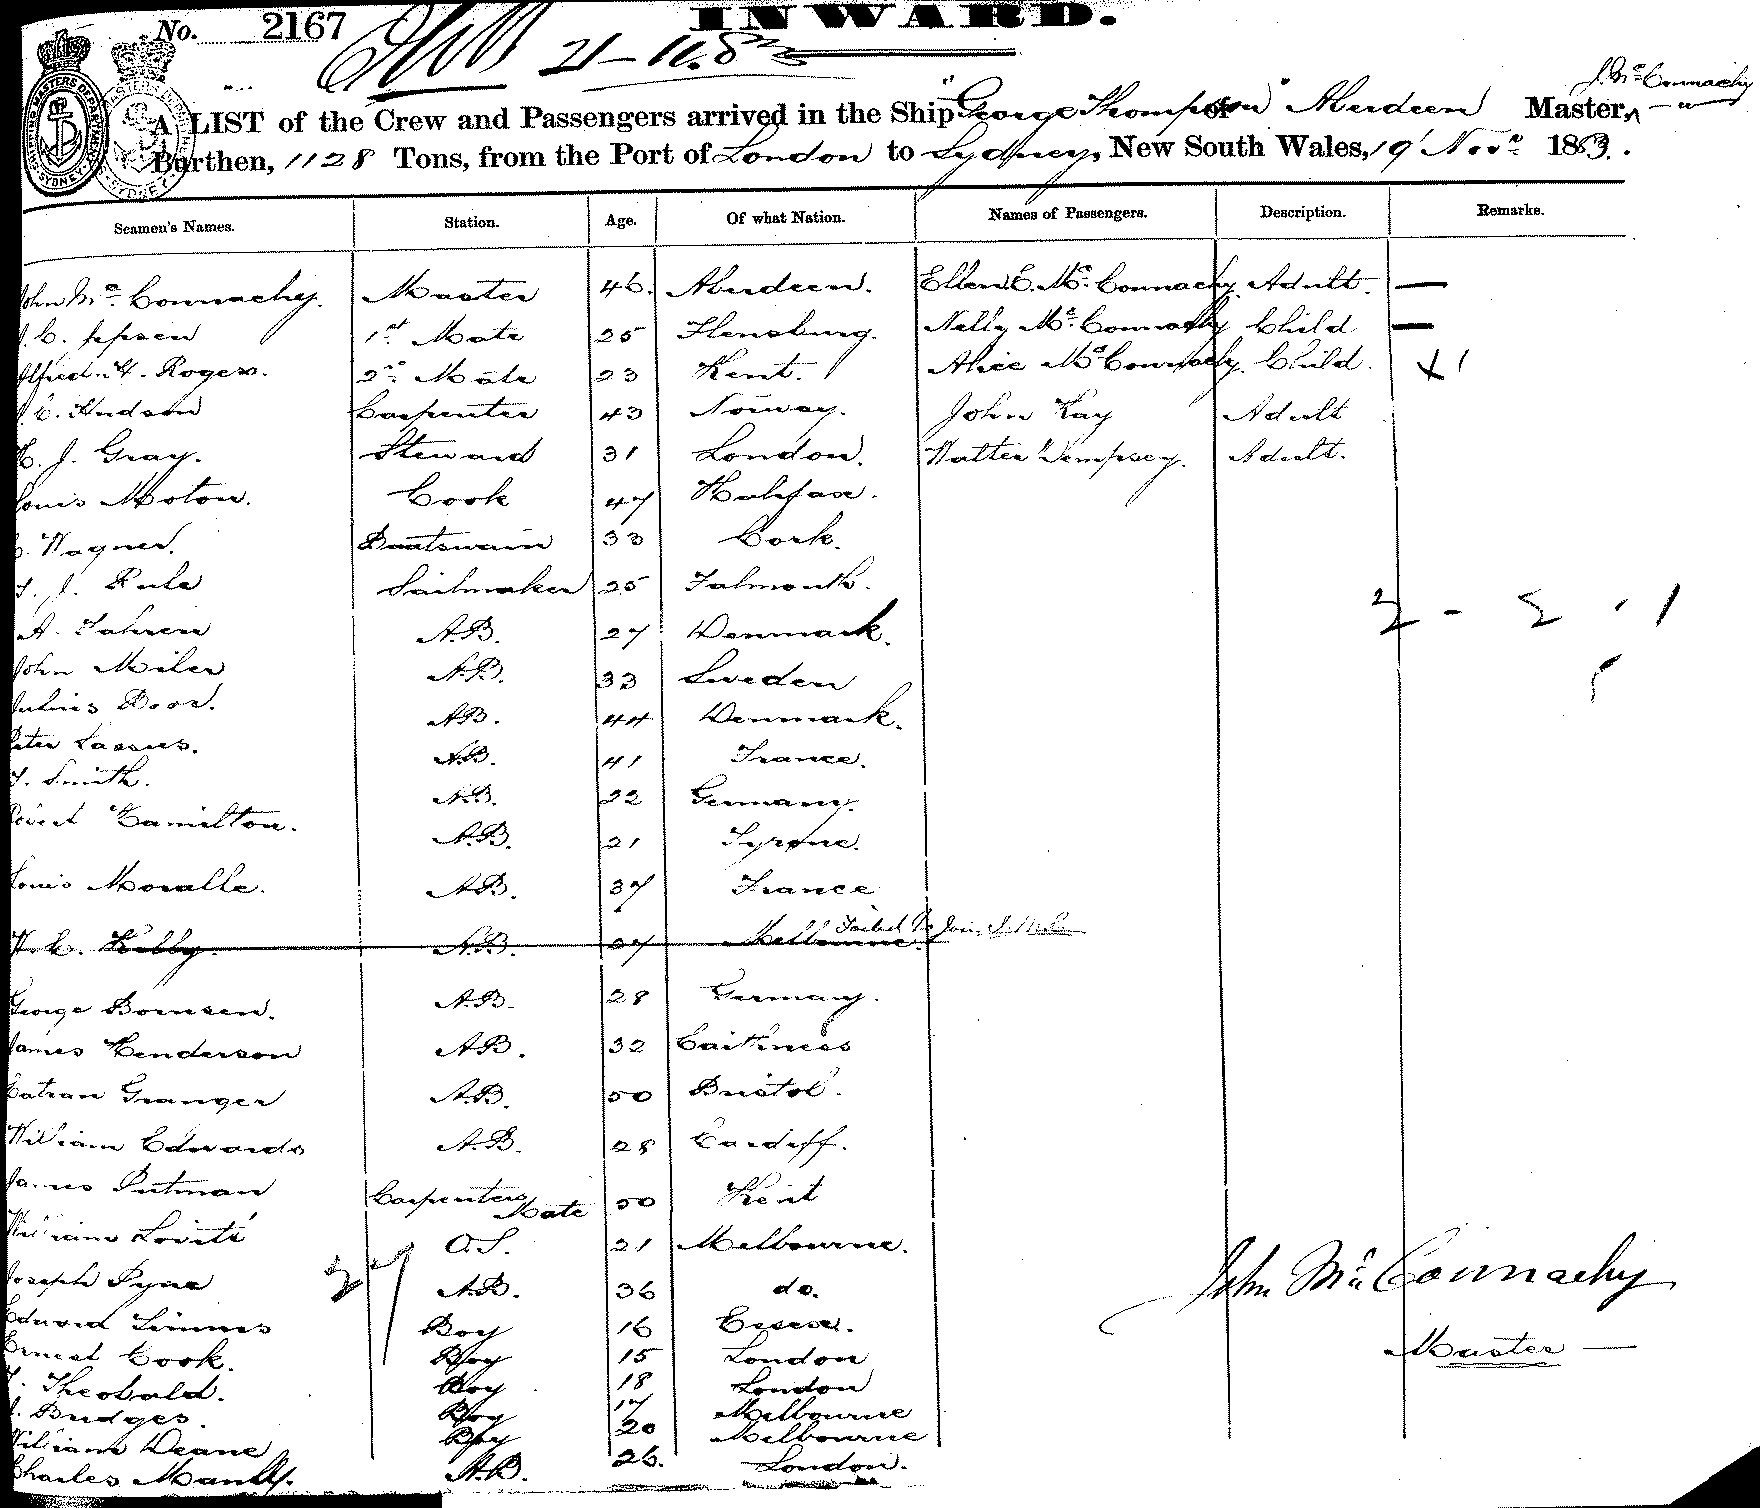 No. 2167
INWARD.
21-11.83
J. Mc Connachy
A LIST of the Crew and Passengers arrived in the Ship "George Thompson" of Aberdeen Master,
Burthen, 1128 Tons, from the Port of London to Sydney, New South Wales, 19' Novr 1883.
Seamen's Names. Station. Age. Of what Nation. Names of Passengers. Description. Remarks.
John Mc Connachy. Master 46. Aberdeen. Ellen E. Mc Connachy. Adult. —
J. C. Jepsen 1st Mate 25 Flensburg. Nelly Mc Connachy Child —
Alfred Y. Rogers. 2nd Mate 23 Kent. Alice Mc Connachy. Child. X'
C. Hudson Carpenter 43 Norway. John Kay Adult
J. Gray. Steward 31 London. Walter Dempsey. Adult.
Louis Moton. Cook 47 Halifax.
Wagner. Boatswain 33 Cork.
J. Rule Sailmaker 25 Falmouth.
A. Fahren A.B. 27 Denmark.
John Miler A.B. 33 Sweden
Julius Boos. A.B. 44 Denmark.
Peter Lassus. A.B. 41 France.
Smith. A.B. 22 Germany.
Robert Hamilton. A.B. 21 Tyrone.
Louis Moralle. A.B. 37 France
W. C. Kelly. A.B. 27 Melbourne. Failed to Join
George Bornsen. A.B. 28 Germany.
James Henderson A.B. 32 Caithness
Granger A.B. 50 Bristol.
William Edwards A.B. 28 Cardiff.
James Putman Carpenters Mate 50 Kent
William Lovitt O.S. 21 Melbourne.
Joseph Pyne A.B. 36 do.
Edward Simms Boy 16 Essex.
Ernest Cook. Boy 15 London
Theobald. Boy 18 London
Budges. Boy 17 Melbourne
William Deane Boy 20 Melbourne
Charles Manly. A.B. 26. London.
John Mc Connachy
Master —